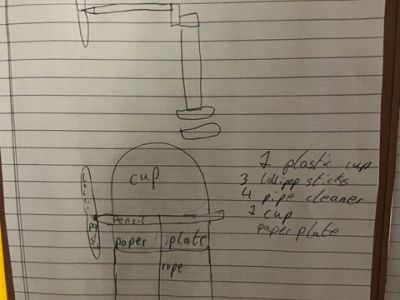 cup
pencil
paper plate
rope
1 plastic cup
3 lollipop sticks
4 pipe cleaner
1 cup
paper plate